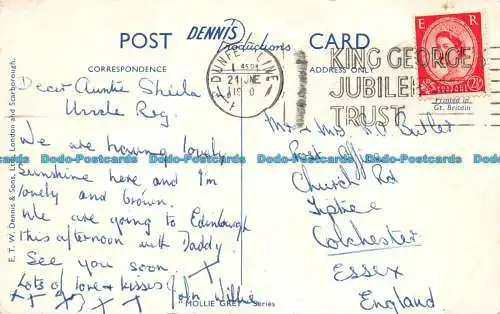 POST DENNIS Productions CARD
CORRESPONDENCE
ADDRESS ONLY
E. T. W. Dennis & Sons, Ltd., London and Scarborough.
DUNFERMLINE
21 JNE
KING GEORGE
JUBILEE
TRUST
E R
2½
Printed in
Gt. Britain
Dear Auntie Sheila
Uncle Reg.
We are having lovely
Sunshine here and I'm
lovely and brown.
We are going to Edinburgh
this afternoon with Daddy.
See you soon
Lots of love & kisses
John Willie
Mr & Mrs Butler
Post Office
Church Rd
Tiptree
Colchester
Essex
England
MOLLIE GREY Series
Bodo-Postcards Bodo-Postcards Bodo-Postcards Bodo-Postcards